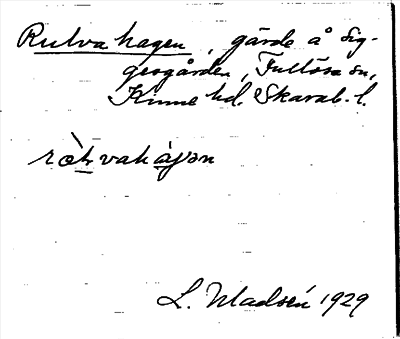 Rulvahagen, gärde å Sig-
gesgården, Fullösa sn,
Kinne hd. Skarab. l.
L. Madsén 1929